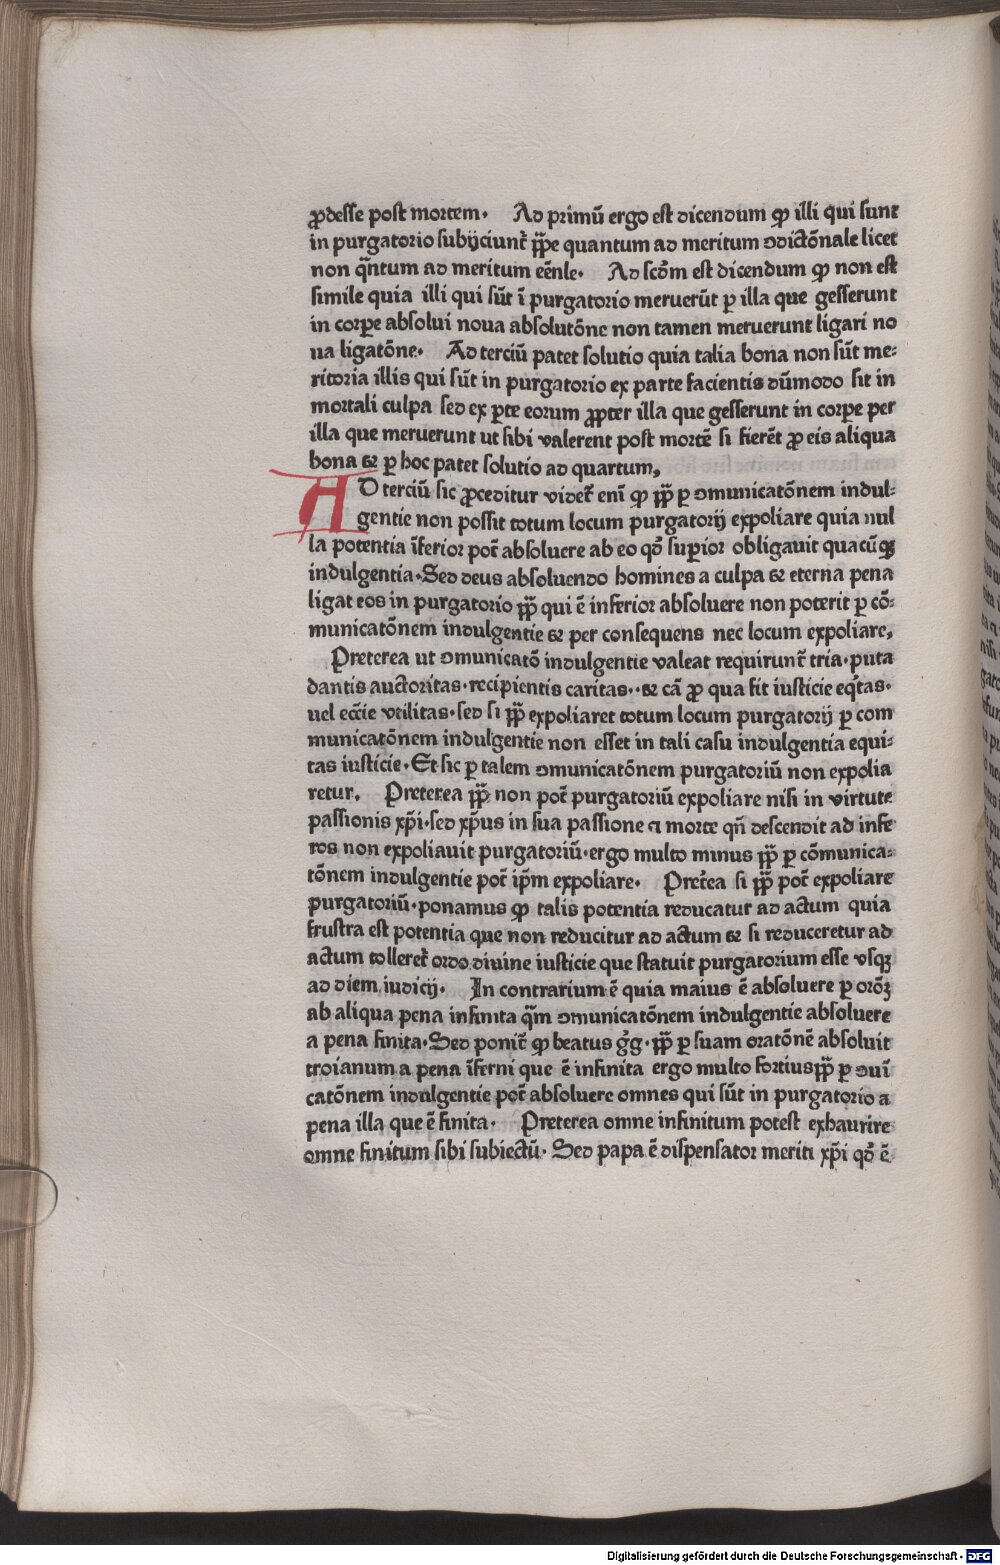 ꝓdesse post mortem· Ad primū ergo est dicendum ꝙ illi qui sunt
in purgatorio subijciunt᷑ pp̄e quantum ad meritum ↄdictōnale licet
non qn̄tum ad meritum eēnle· Ad scōm est dicendum ꝙ non est
simile quia illi qui sūt ī purgatorio meruerūt ꝑ illa que gesserunt
in corpe absolui noua absolutōne non tamen meruerunt ligari no
ua ligatōne· Ad terciū patet solutio quia talia bona non sūt me⸗
ritoria illis qui sūt in purgatorio ex parte facientis dūmodo sit in
mortali culpa sed ex ꝑte eorum ꝓpter illa que gesserunt in corpe per
illa que meruerunt ut sibi valerent post mortē si fierēt ꝓ eis aliqua
bona ⁊ ꝑ hoc patet solutio ad quartum,
AD terciū sic ꝓceditur videt᷑ enī ꝙ pp̄ ꝑ ↄmunicatōnem indul⸗
gentie non possit totum locum purgatorij expoliare quia nul
la potentia īferior pot̄ absoluere ab eo qd̄ suꝑior obligauit quacūqꝫ
indulgentia·Sed deus absoluendo homines a culpa ⁊ eterna pena
ligat eos in purgatorio pp̄ qui ē inferior absoluere non poterit ꝑ cō⸗
municatōnem indulgentie ⁊ per consequens nec locum expoliare,
Preterea ut ↄmunicatō indulgentie valeat requirunt᷑ tria·puta
dantis auctoritas·recipientis caritas··⁊ cā ꝓ qua fit iusticie eq̄tas·
uel ecc̄ie vtilitas·sed si pp̄ expoliaret totum locum purgatorij ꝑ com
municatōnem indulgentie non esset in tali casu indulgentia equi⸗
tas iusticie·Et sic ꝑ talem ↄmunicatōnem purgatoriū non expolia
retur. Preterea pp̄ non pot̄ purgatoriū expoliare nisi in virtute
passionis xp̄i·sed xp̄us in sua passione ⁊ morte qn̄ descendit ad infe
ros non expoliauit purgatoriū·ergo multo minus pp̄ ꝑ cōmunica⸗
tōnem indulgentie pot̄ ip̄m expoliare· Pret̄ea si pp̄ pot̄ expoliare
purgatoriū·ponamus ꝙ talis potentia reducatur ad actum quia
frustra est potentia que non reducitur ad actum ⁊ si reduceretur ad
actum tolleret᷑ ordo diuine iusticie que statuit purgatorium esse vsqꝫ
ad diem iudicij· In contrarium ē quia maius ē absoluere ꝑ orōꝫ
ab aliqua pena infinita qm̄ ↄmunicatōnem indulgentie absoluere
a pena finita·Sed ponit᷑ ꝙ beatus gḡ·pp̄ ꝑ suam oratōnē absoluit
troianum a pena īferni que ē infinita ergo multo fortius pp̄ ꝑ ↄuī
catōnem indulgentie pot̄ absoluere omnes qui sūt in purgatorio a
pena illa que ē finita· Preterea omne infinitum potest exhaurire
omne finitum sibi subiectū· Sed papa ē dispensator meriti xp̄i qd̄ ē
Digitalisierung gefördert durch die Deutsche Forschungsgemeinschaft - DFG